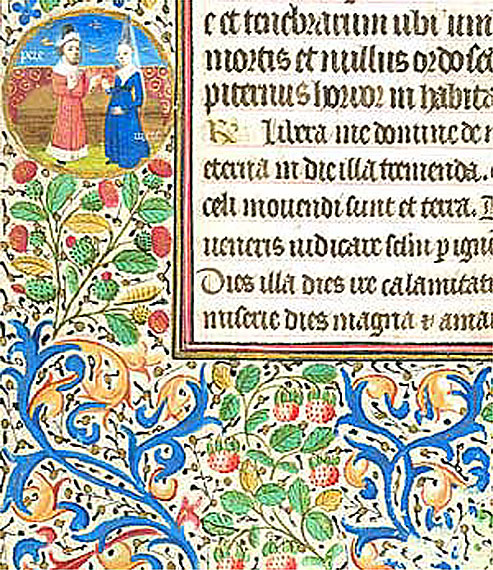 e et tenebrarum ubi um
mortis et nullus ordo se
piternus horror in habita
Libera me domine de
eterna in die illa tremenda.
celi movendi sunt et terra.
veneris iudicare sclm p igne
Dies illa dies ire calamitati
miserie dies magna et amar